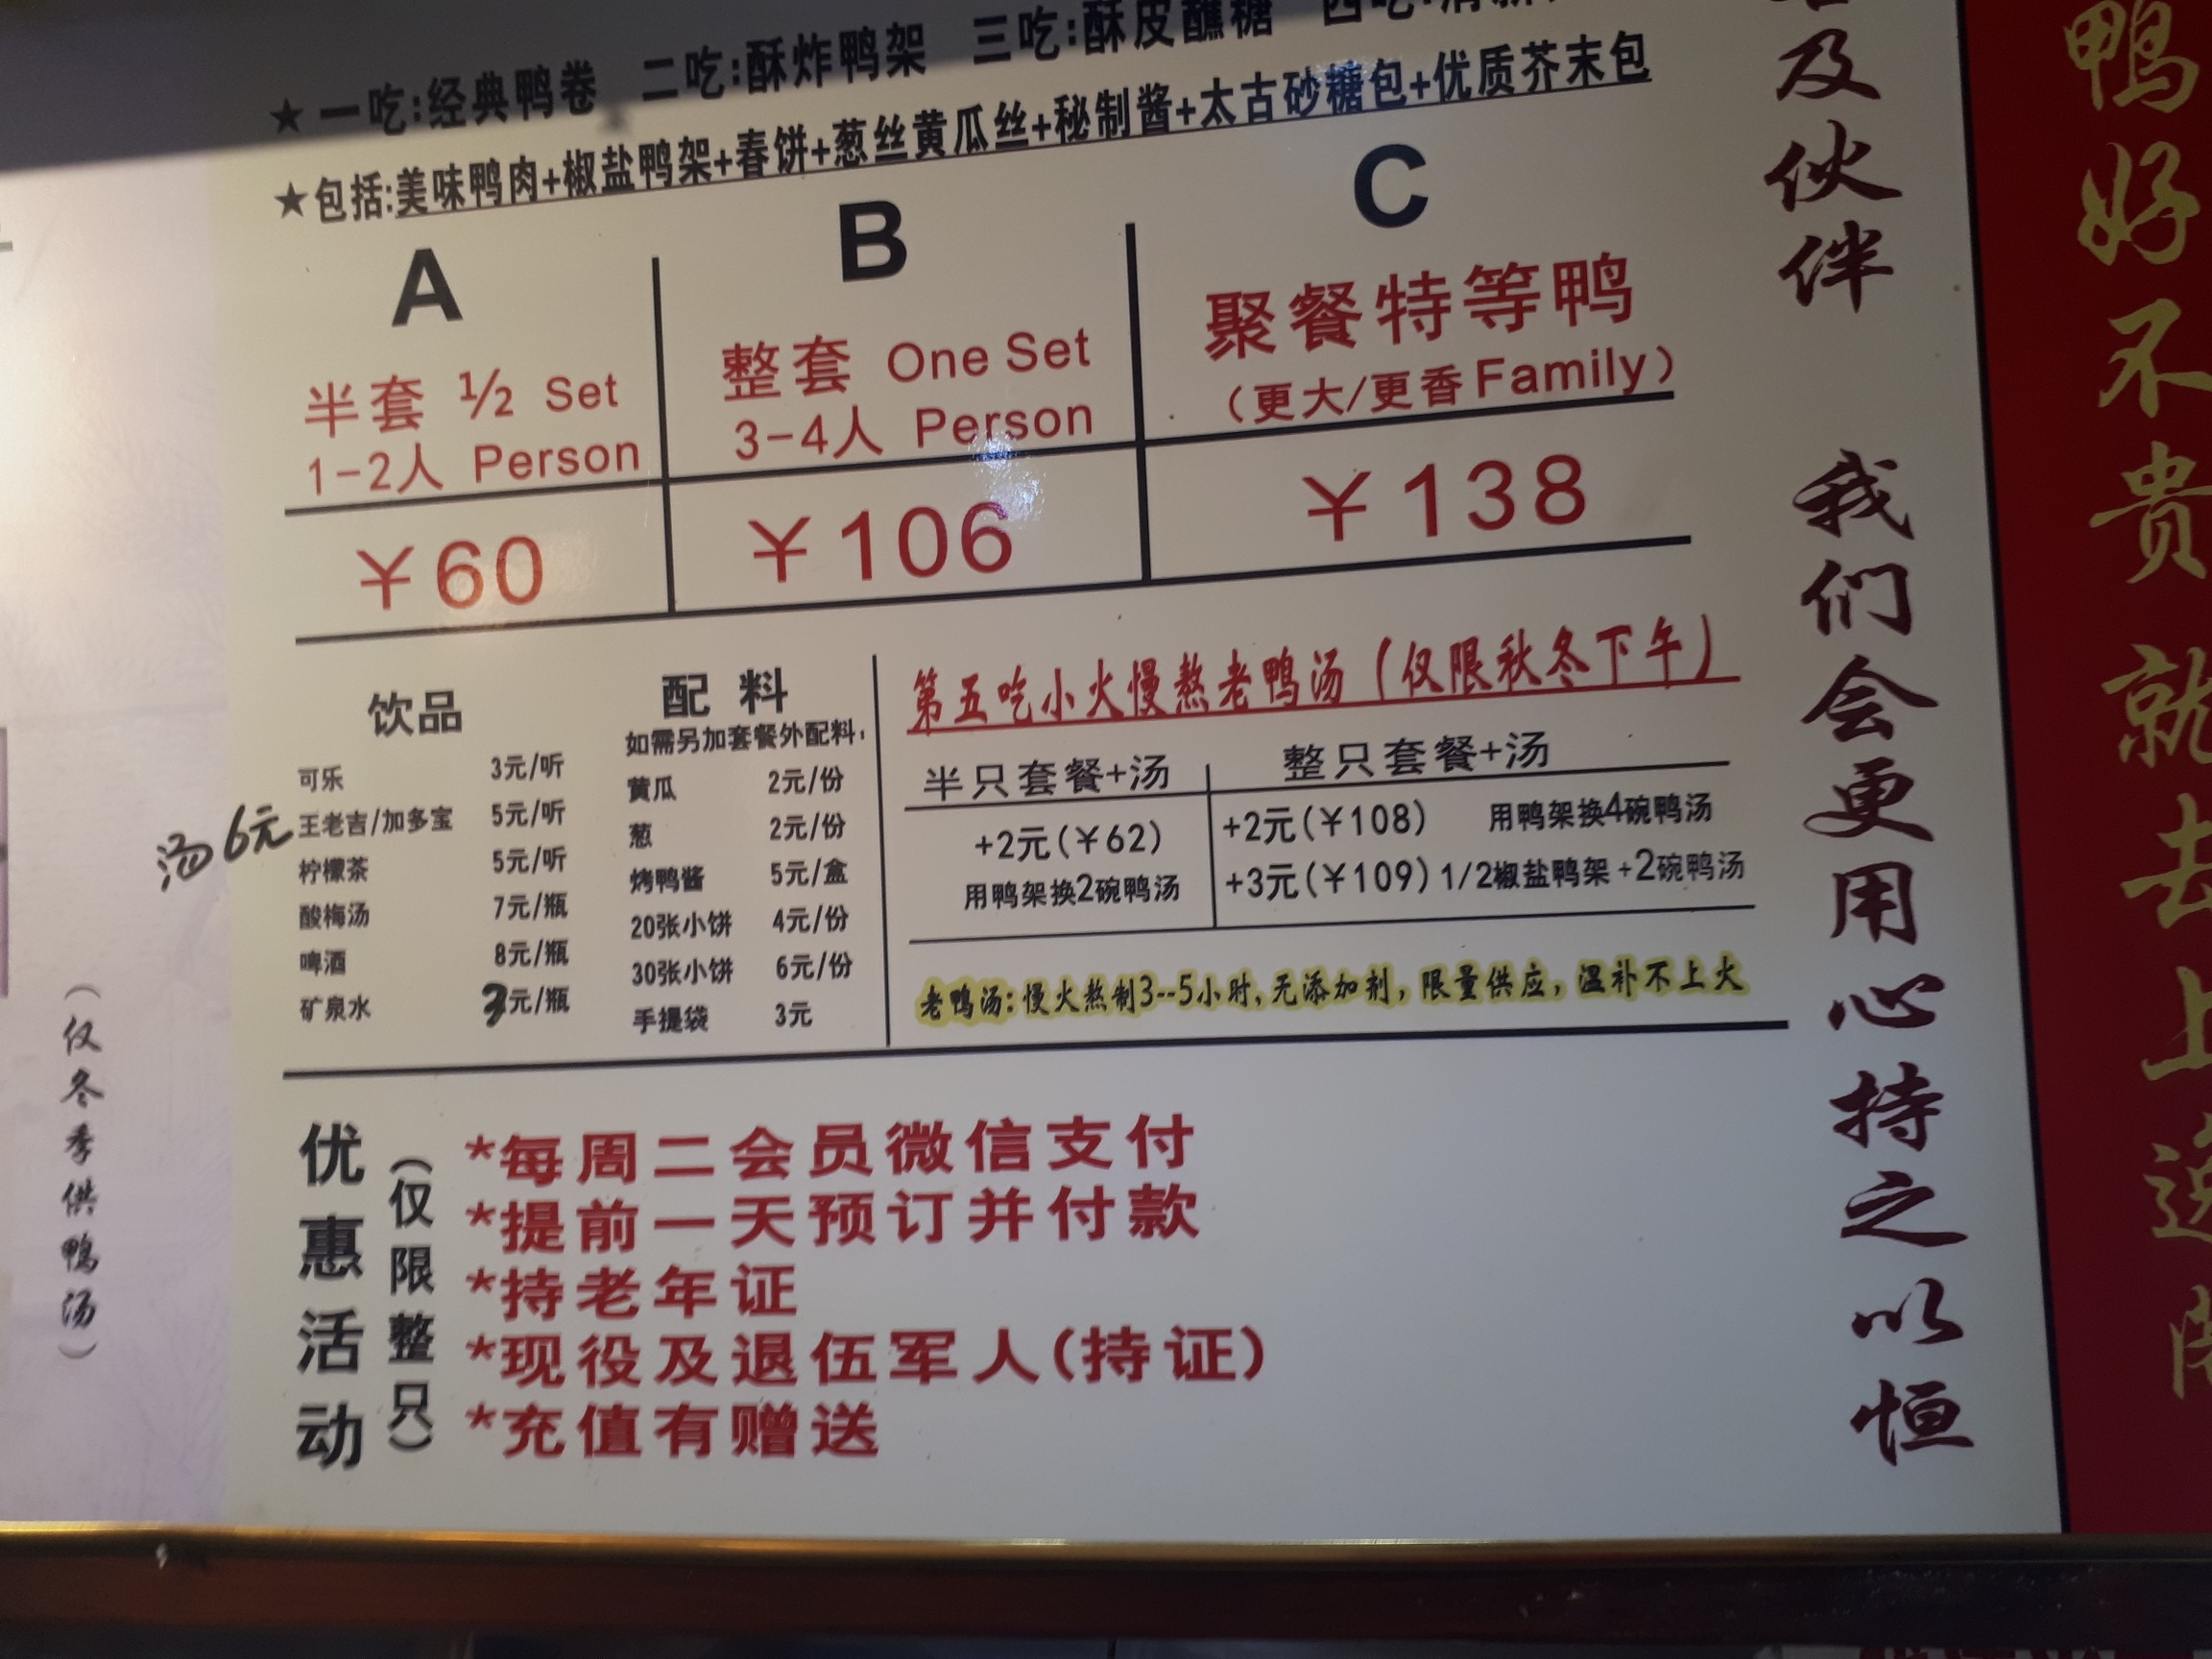 ★一吃:经典鸭卷 二吃:酥炸鸭架 三吃:酥皮蘸糖 四吃:
★包括:美味鸭肉+椒盐鸭架+春饼+葱丝黄瓜丝+秘制酱+太古砂糖包+优质芥末包
A
半套 ½ Set
1-2人 Person
￥60
B
整套 One Set
3-4人 Person
￥106
C
聚餐特等鸭
(更大/更香Family)
￥138
饮品
可乐 3元/听
王老吉/加多宝 5元/听
柠檬茶 5元/听
酸梅汤 7元/瓶
啤酒 8元/瓶
矿泉水 3元/瓶
汤6元
配料
如需另加套餐外配料:
黄瓜 2元/份
葱 2元/份
烤鸭酱 5元/盒
20张小饼 4元/份
30张小饼 6元/份
手提袋 3元
第五吃小火慢熬老鸭汤(仅限秋冬下午)
半只套餐+汤
+2元(￥62)
用鸭架换2碗鸭汤
整只套餐+汤
+2元(￥108) 用鸭架换4碗鸭汤
+3元(￥109) 1/2椒盐鸭架+2碗鸭汤
老鸭汤:慢火熬制3--5小时,无添加剂,限量供应,温补不上火
优惠活动
(仅限整只)
*每周二会员微信支付
*提前一天预订并付款
*持老年证
*现役及退伍军人(持证)
*充值有赠送
(仅冬季供鸭汤)
及伙伴 我们会更用心持之以恒
鸭好不贵就去上